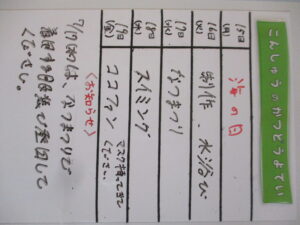 こんしゅうのかつどうよてい
15日(月) 海の日
16日(火) 制作、水浴び
17日(水) なつまつり
18日(木) スイミング
19日(金) ココファン マスク持ってきてください。
<お知らせ>
7/17(水)は、なつまつりで
着用する で登園して
ください。